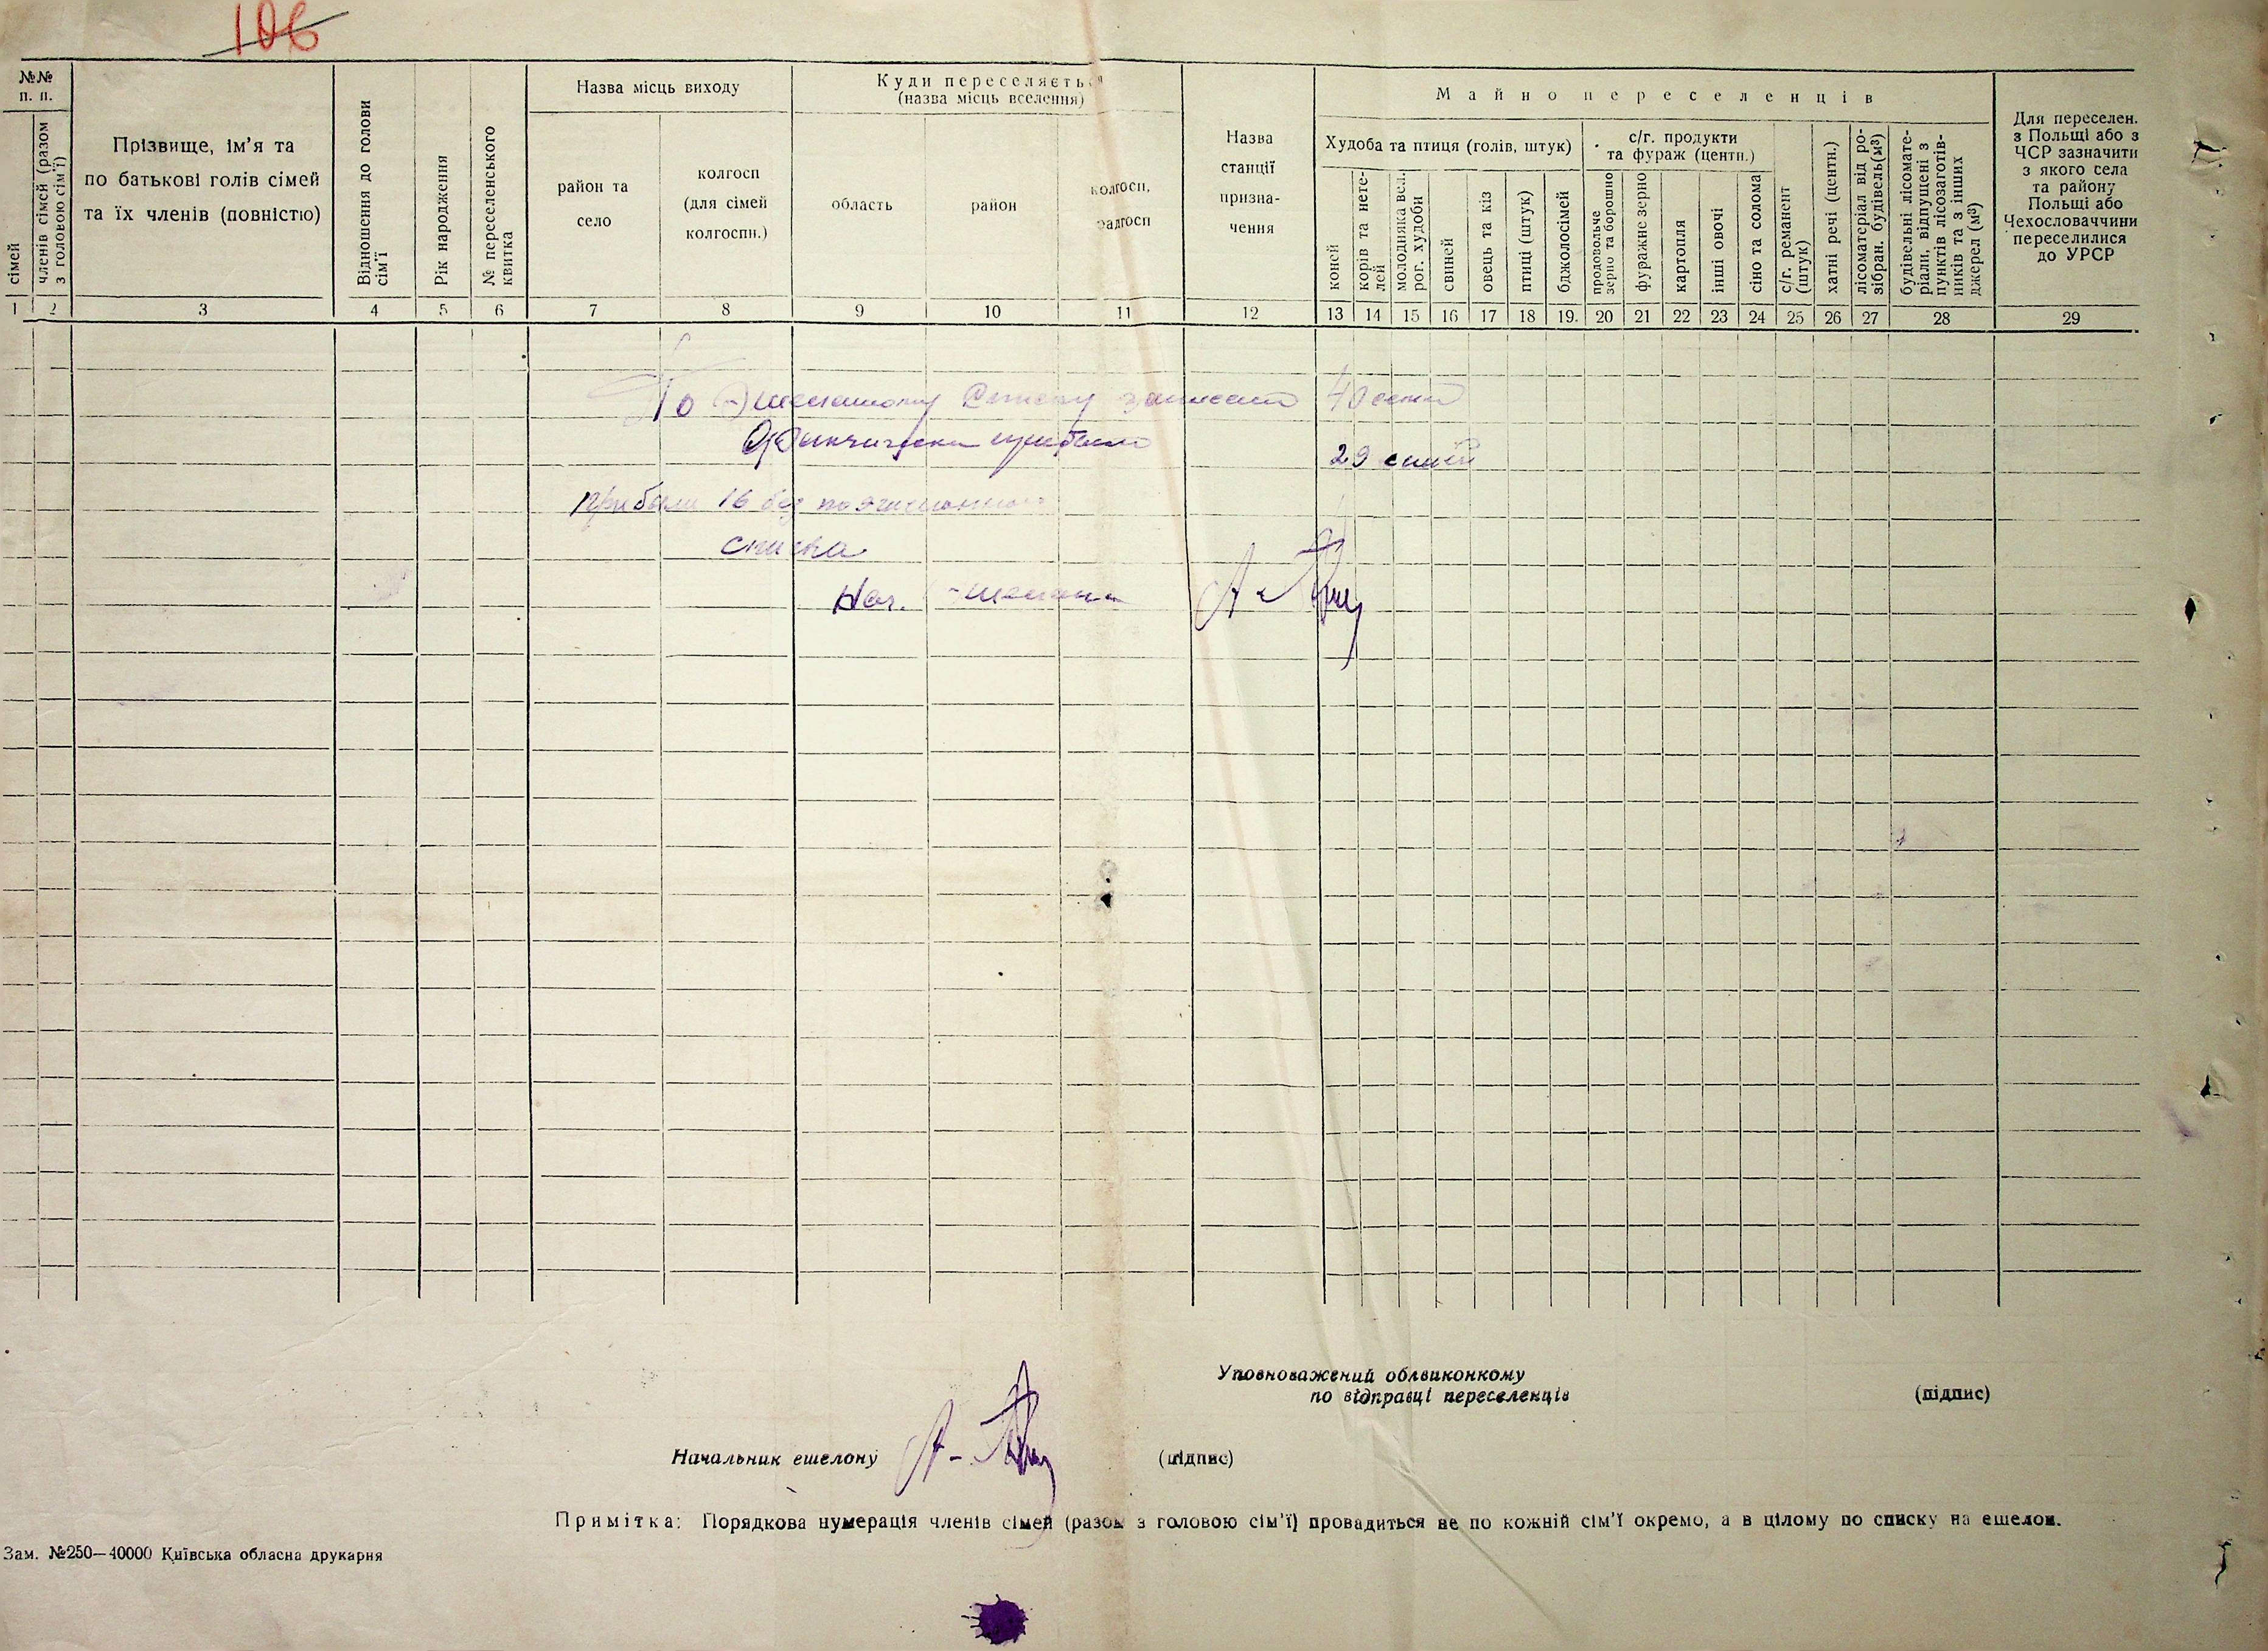 106
№№ п. п.
сімей
членів сімей (разом з головою сім'ї)
Прізвище, ім'я та
по батькові голів сімей
та їх членів (повністю)
Відношення до голови сім'ї
Рік народження
№ переселенського квитка
Назва місць виходу
район та
село
колгосп
(для сімей
колгоспн.)
Куди переселяєтьс
(назва місць вселення)
область
район
колгосп,
радгосп
Назва
станції
призна-
чення
Майно переселенців
Худоба та птиця (голів, штук)
коней
корів та нете-
лей
молодняка вел.
рог. худоби
свиней
овець та кіз
птиці (штук)
бджолосімей
с/г. продукти
та фураж (центн.)
продовольче
зерно та борошно
фуражне зерно
картопля
інші овочі
сіно та солома
с/г. реманент
(штук)
хатні речі (центн.)
лісоматеріал від ро-
зібран. будівель (м³)
будівельні лісомате-
ріали, відпущені з
пунктів лісозаготів-
ників та з інших
джерел (м³)
Для переселен.
з Польщі або з
ЧСР зазначити
з якого села
та району
Польщі або
Чехословаччини
переселилися
до УРСР
1 2 3 4 5 6 7 8 9 10 11 12 13 14 15 16 17 18 19. 20 21 22 23 24 25 26 27 28 29
По Эшелонному списку записано 40 семей
Фактически прибыло 29 семей
Прибыли 16 без поэшелонного
списка
Нач. эшелона
Уповноважений облвиконкому
по відправці переселенців (підпис)
Начальник ешелону (підпис)
Примітка: Порядкова нумерація членів сімей (разом з головою сім'ї) провадиться не по кожній сім'ї окремо, а в цілому по списку на ешелон.
Зам. №250—40000 Київська обласна друкарня